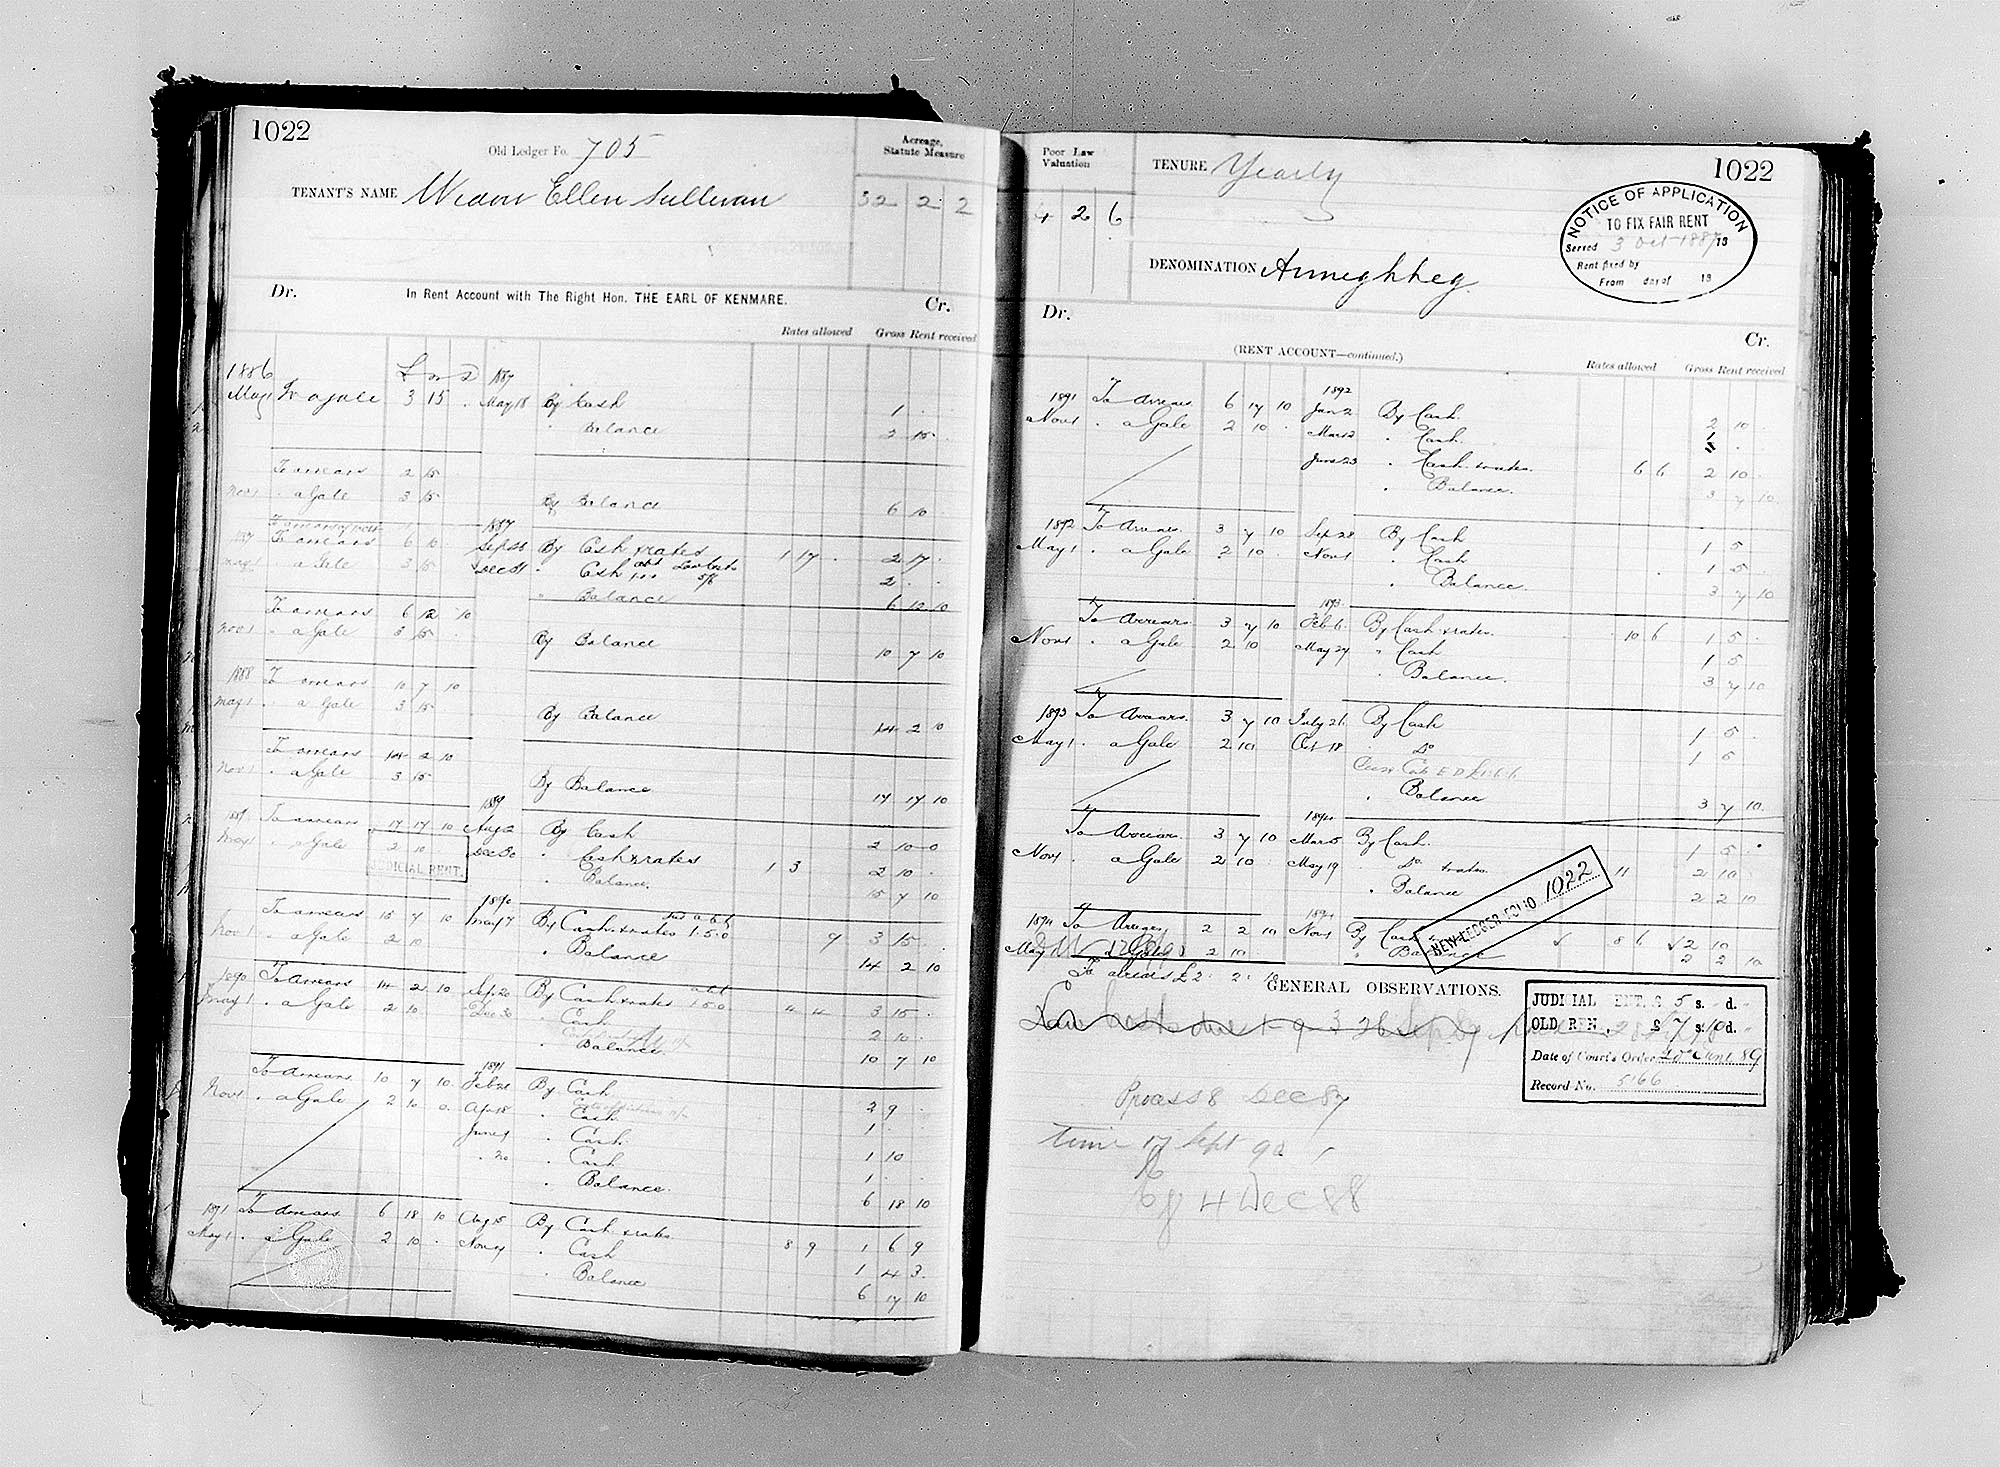 1022
Old Ledger Fo. 705
Acreage, Statute Measure
TENANT'S NAME Widow Ellen Sullivan
32 2 2
Dr. In Rent Account with The Right Hon. THE EARL OF KENMARE. Cr.
Rates allowed Gross Rent received
1886 £ s d 1887
May 1 To a gale 3 15 . May 18 By Cash 1 .
" Balance 2 15 .
To arrears 2 15
Nov 1 " a Gale 3 15 By Balance 6 10
1887
To arrears 6 10 Sept By Cash & rates 1 17 . 2 17 .
May 1 " a Gale 3 15 Dec " Cash 2 . .
" Balance 6 12 10
To arrears 6 12 10
Nov 1 " a Gale 3 15 By Balance 10 7 10
1888 To arrears 10 7 10
May 1 " a Gale 3 15 By Balance 14 2 10
To arrears 14 2 10
Nov 1 " a Gale 3 15 By Balance 17 17 10
1889
1889 To arrears 17 17 10 Aug 2 By Cash 2 10 0
May 1 " a Gale 2 10 Dec 30 " Cash & rates 1 3 2 10 .
JUDICIAL RENT.
" Balance. 15 7 10
1890
To arrears 15 7 10 May 7 By Cash & rates 1.5.0 9 3 15 .
Nov 1 " a Gale 2 10 " Balance 14 2 10
1890 To arrears 14 2 10 Sep 20 By Cash & rates 1.5.0 4 4 3 15 .
May 1 " a Gale 2 10 Dec 30 " Cash 2 10 .
" Balance. 10 7 10
1891
To arrears 10 7 10 Feb 21 By Cash 2 9 .
Nov 1 " a Gale 2 10 0 Apr 18 " Cash 1 .
June 1 " Cash 1 10
" 20 " Cash 1 .
" Balance. 6 18 10
1891 To arrears 6 18 10 Aug 15 By Cash & rates 8 9 1 6 9
May 1 " a Gale 2 10 . Nov " Cash 1 4 3
" Balance 6 17 10
Poor Law Valuation
4 2 6
TENURE Yearly
1022
DENOMINATION Anneghbeg
NOTICE OF APPLICATION
TO FIX FAIR RENT
Served 3 Oct 1887 18
Rent fixed by
From day of 18
Dr. Cr.
(RENT ACCOUNT—continued.)
Rates allowed Gross Rent received
1892
1891 To Arrears 6 17 10 Jan 2 By Cash. 2 10 .
Nov 1 " a Gale 2 10 . Mar 2 " Cash. 1
June 23 " Cash & rates. 6 6 2 10 .
" Balance. 3 7 10
1892 To Arrears 3 7 10 Sep 28 By Cash 1 5 .
May 1 " a Gale 2 10 . Nov 1 " Cash 1 5
" Balance. 3 7 10
1893.
To Arrears 3 7 10 Feb 6 By Cash & rates. 10 6 1 5
Nov 1 " a Gale 2 10 May 27 " Cash 1 5
" Balance. 3 7 10
1893 To Arrears. 3 7 10 July 26 By Cash 1 5
May 1 " a Gale 2 10 Oct 18 Do 1 5
" Balance 3 7 10
1894
To Arrears 3 7 10 Mar 5 By Cash. 1 5
Nov 1 " a Gale 2 10 May 19 " Do. & rates. 11 2 10
" Balance 2 2 10
NEW LEDGER FOLIO 1022
1894
1894 To Arrears 2 2 10 Nov 1 By Cash 8 6 2 10
May 1 a Gale 2 10 " Balance 2 2 10
To arrears £2: 2: 10
GENERAL OBSERVATIONS.
JUDICIAL RENT. £ 5 s. d.
OLD RENT, £ 7 s. 10 d.
Date of Court's Order June 89
Record No. 5166
Process 8 Dec 87
time 17 Sept 90
4 Dec 88